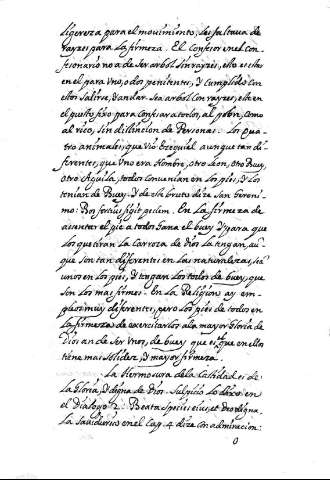 ligereza para el movimiento, les faltava de
rayzes para la firmeza. El Confesor en el con-
fesionario no a de ser arbol sin rayzes, este es estar
en el para vno, o dos penitentes, y cumplido con
ellos salirse, y andar. Sea arbol con rayzes, este en
el puesto fixo para confesar a todos, al pobre, como
al rico, sin distincion de Personas. Los qua-
tro animales, que vio Ezequiel aunque tan di-
ferentes, que vno era Hombre, otro Leon, otro Buey,
otro Aguila, todos convenian en los pies, y los
tenian de Buey. Y de esta bruta dize San Geroni-
mo: Bos fortius figit pedem. En la firmeza de
asentar el pie a todos gana el buey. Y para que
los que tiran la Carroza de Dios la tengan, au-
que son tan diferentes en las naturalezas, sea
unos en los pies, y tengan los todos de buey, que
son los mas firmes. En la Religion ay em-
pleos muy diferentes, pero los pies de todos en
la firmeza de exercitarlos a la mayor gloria de
Dios an de ser vnos, de buey que es el que en ellos
tiene mas solidez, y mayor firmeza.
La Hermosura de la Castidad es de
la gloria, y digna de Dios. Sulpicio lo dixo en
el Dialogo 2. Beata species eius, et Deo digna.
La Sabiduria en el Cap. 4 dize con admiracion:
O